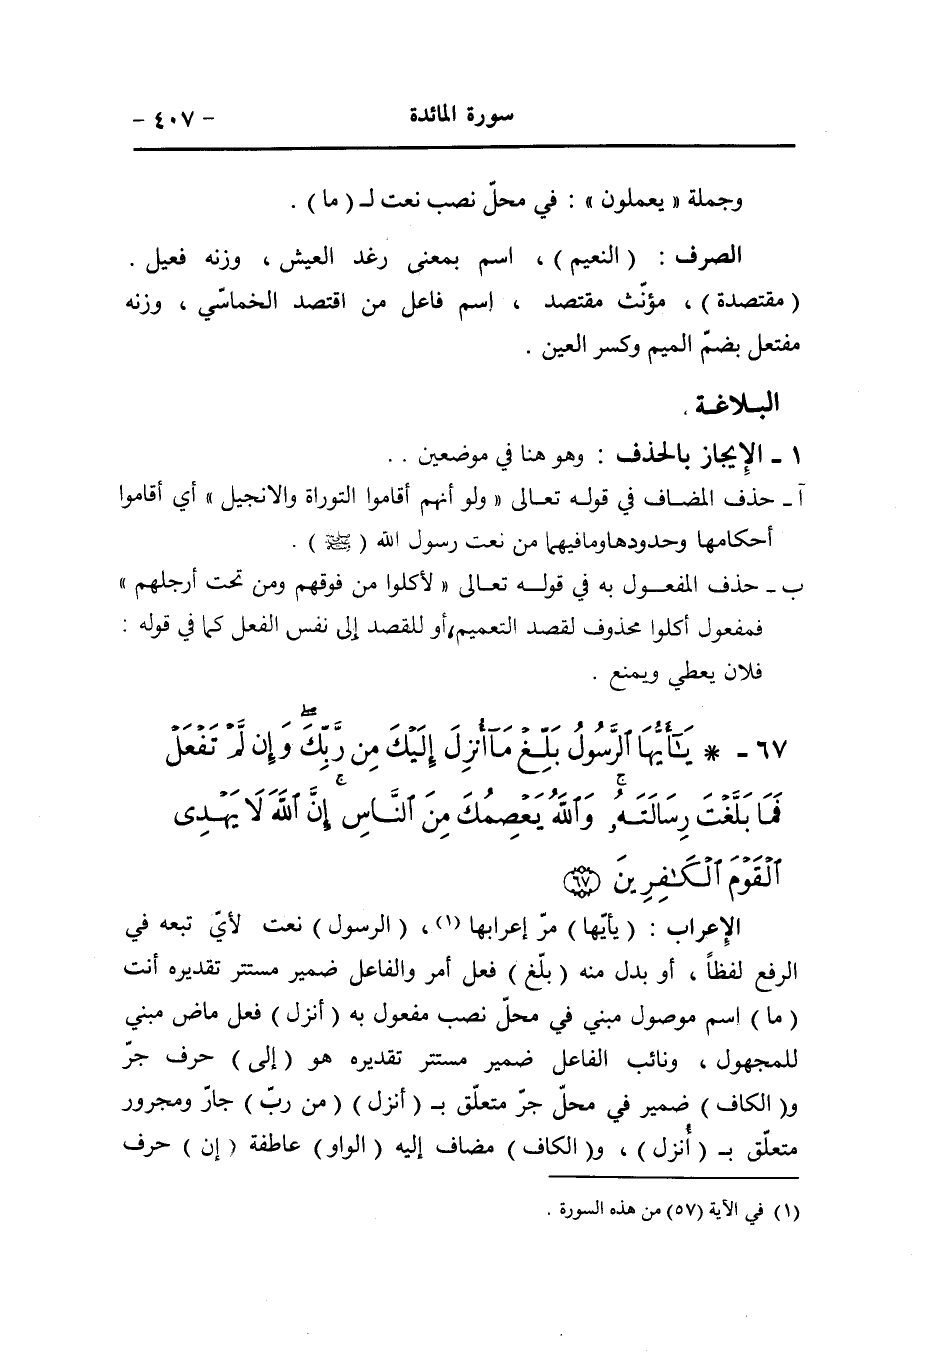 سورة المائدة - ٤٠٧ -
وجملة « يعملون » : في محلّ نصب نعت لـ ( ما ) .
الصرف : ( النعيم ) ، اسم بمعنى رغد العيش ، وزنه فعيل .
( مقتصدة ) ، مؤنّث مقتصد ، إسم فاعل من اقتصد الخماسّي ، وزنه
مفتعل بضمّ الميم وكسر العين .
البلاغة .
١ - الإيجاز بالحذف : وهو هنا في موضعين . .
آ - حذف المضاف في قوله تعالى « ولو أنهم أقاموا التوراة والانجيل » أي أقاموا
أحكامها وحدودها ومافيهما من نعت رسول الله ( ﷺ ) .
ب - حذف المفعول به في قوله تعالى « لأكلوا من فوقهم ومن تحت أرجلهم »
فمفعول أكلوا محذوف لقصد التعميم، أو للقصد إلى نفس الفعل كما في قوله :
فلان يعطي ويمنع .
٦٧ - * يَٰٓأَيُّهَا ٱلرَّسُولُ بَلِّغْ مَآ أُنزِلَ إِلَيْكَ مِن رَّبِّكَ ۖ وَإِن لَّمْ تَفْعَلْ
فَمَا بَلَّغْتَ رِسَالَتَهُۥ ۚ وَٱللَّهُ يَعْصِمُكَ مِنَ ٱلنَّاسِ ۚ إِنَّ ٱللَّهَ لَا يَهْدِى
ٱلْقَوْمَ ٱلْكَٰفِرِينَ ﴿٦٧﴾
الإعراب : ( يأيّها ) مرّ إعرابها (١) ، ( الرسول ) نعت لأيّ تبعه في
الرفع لفظاً ، أو بدل منه ( بلّغ ) فعل أمر والفاعل ضمير مستتر تقديره أنت
( ما ) اسم موصول مبني في محلّ نصب مفعول به ( أنزل ) فعل ماض مبني
للمجهول ، ونائب الفاعل ضمير مستتر تقديره هو ( إلى ) حرف جرّ
و( الكاف ) ضمير في محلّ جرّ متعلّق بـ ( أنزل ) ( من ربّ ) جارّ ومجرور
متعلّق بـ ( أُنزل ) ، و( الكاف ) مضاف إليه ( الواو ) عاطفة ( إن ) حرف
(١) في الآية (٥٧) من هذه السورة .